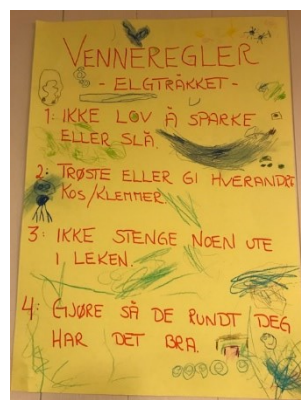 VENNEREGLER
- ELGTRÅKKET -
1: IKKE LOV Å SPARKE
ELLER SLÅ.
2: TRØSTE ELLER GI HVERANDRE
KOS/KLEMMER.
3: IKKE STENGE NOEN UTE
I LEKEN.
4: GJØRE SÅ DE RUNDT DEG
HAR DET BRA.